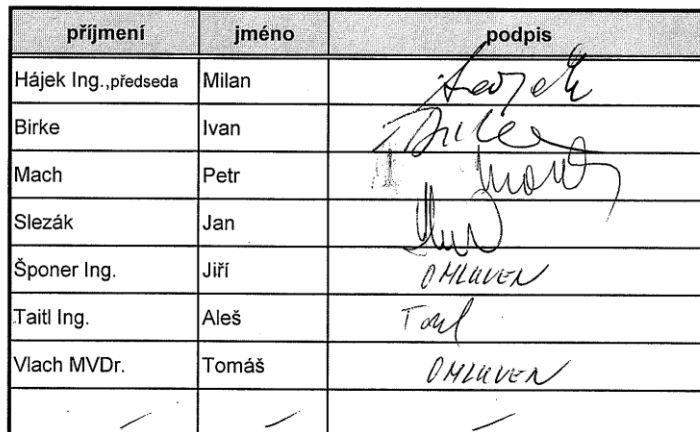 příjmení jméno podpis
Hájek Ing.,předseda Milan
Birke Ivan
Mach Petr
Slezák Jan
Šponer Ing. Jiří OMLUVEN
Taitl Ing. Aleš
Vlach MVDr. Tomáš OMLUVEN